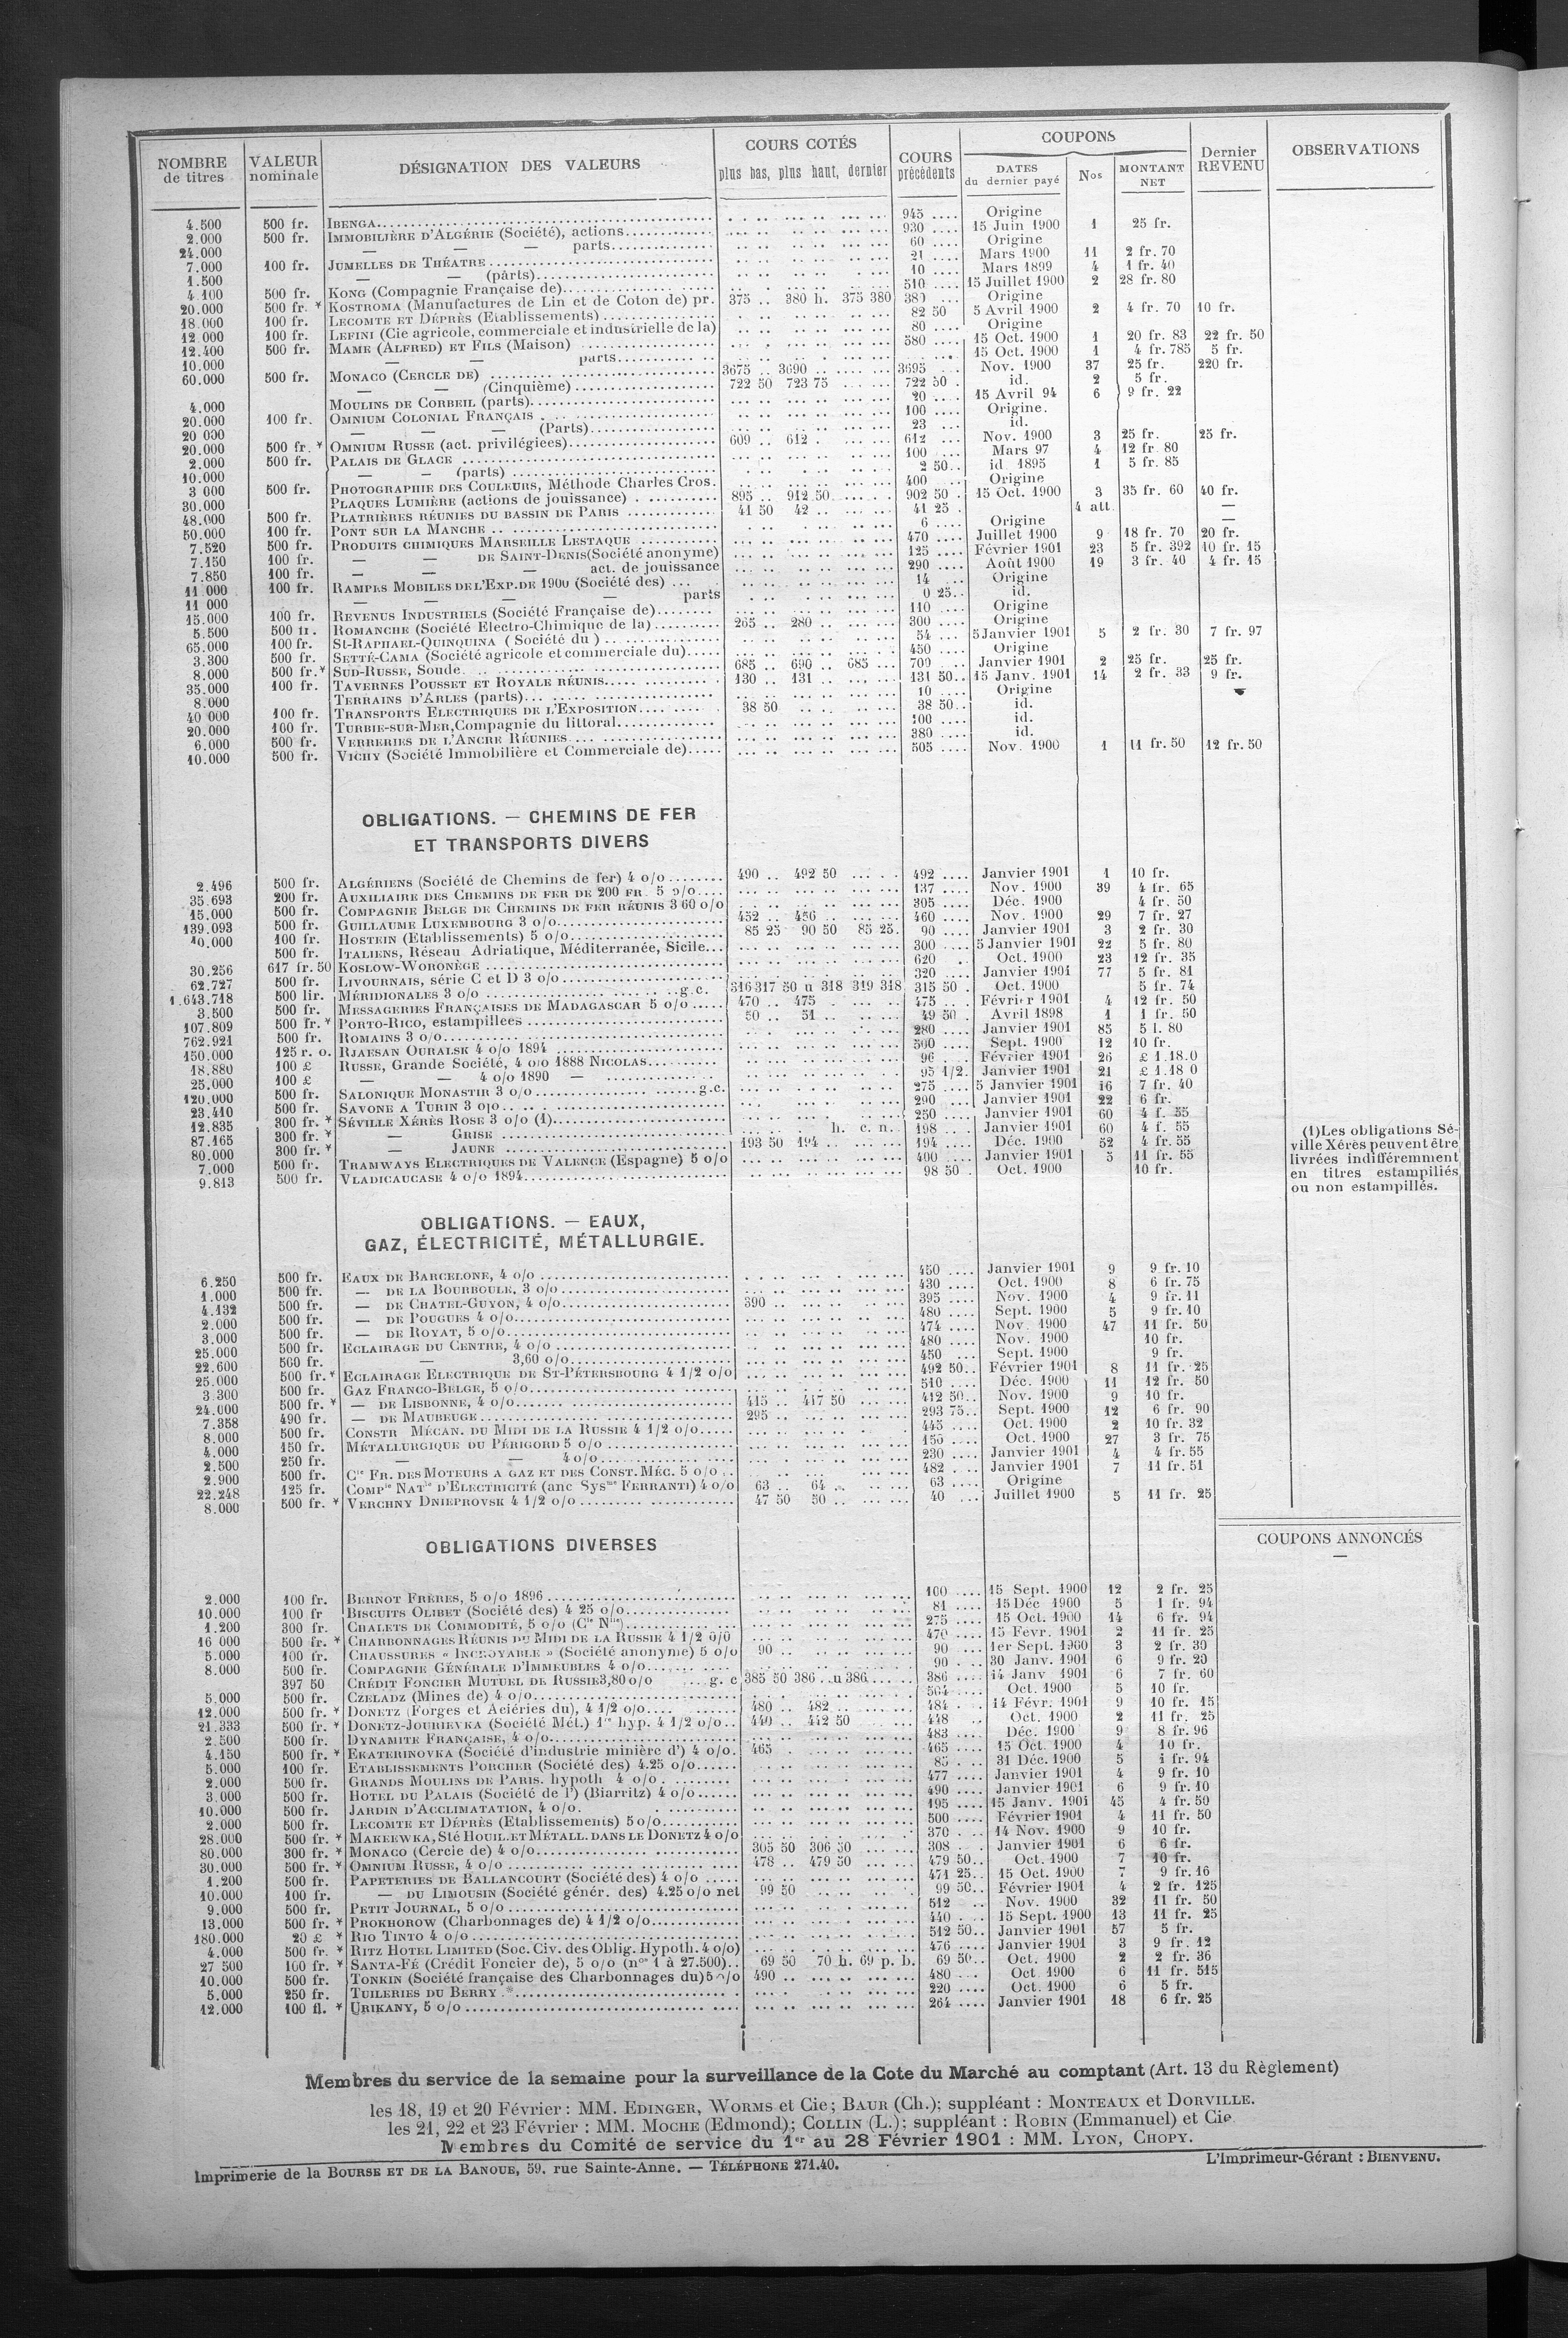 NOMBRE de titres | VALEUR nominale | DÉSIGNATION DES VALEURS | COURS COTÉS plus bas, plus haut, dernier | COURS précédents | COUPONS DATES du dernier payé | Nos | MONTANT NET | Dernier REVENU | OBSERVATIONS
4.500 500 fr. IBENGA 945 Origine
2.000 500 fr. IMMOBILIÈRE D'ALGÉRIE (Société), actions 930 15 Juin 1900 1 25 fr.
24.000 — — — parts 60 Origine
7.000 100 fr. JUMELLES DE THÉATRE 21 Mars 1900 11 2 fr. 70
1.500 — — (parts) 10 Mars 1899 4 1 fr. 40
4.100 500 fr. KONG (Compagnie Française de) 510 15 Juillet 1900 2 28 fr. 80
20.000 500 fr. * KOSTROMA (Manufactures de Lin et de Coton de) pr. 375 .. 380 h. 375 380 380 Origine
18.000 100 fr. LECOMTE ET DÉPRÈS (Etablissements) 82 50 5 Avril 1900 2 4 fr. 70 10 fr.
12.000 100 fr. LEFINI (Cie agricole, commerciale et industrielle de la) 80 Origine
12.400 500 fr. MAME (ALFRED) ET FILS (Maison) 580 15 Oct. 1900 1 20 fr. 83 22 fr. 50
10.000 — — parts 15 Oct. 1900 1 4 fr. 785 5 fr.
60.000 500 fr. MONACO (CERCLE DE) 3675 .. 3690 .. 3695 Nov. 1900 37 25 fr. 220 fr.
— — (Cinquième) 722 50 723 75 722 50 id. 2 5 fr.
4.000 MOULINS DE CORBEIL (parts) 20 15 Avril 94 6 9 fr. 22
20.000 100 fr. OMNIUM COLONIAL FRANÇAIS 100 Origine.
20 000 — — — (Parts) 23 id.
20.000 500 fr. * OMNIUM RUSSE (act. privilégiées) 609 .. 612 . 612 Nov. 1900 3 25 fr. 25 fr.
2.000 500 fr. PALAIS DE GLACE 100 Mars 97 4 12 fr. 80
10.000 — — (parts) 2 50 id. 1895 1 5 fr. 85
3 000 500 fr. PHOTOGRAPHIE DES COULEURS, Méthode Charles Cros. 400 Origine
30.000 PLAQUES LUMIÈRE (actions de jouissance) 895 .. 912 50 902 50 15 Oct. 1900 3 35 fr. 60 40 fr.
48.000 500 fr. PLATRIÈRES RÉUNIES DU BASSIN DE PARIS 41 50 42 .. 41 25 4 att. —
50.000 100 fr. PONT SUR LA MANCHE 6 Origine —
7.520 500 fr. PRODUITS CHIMIQUES MARSEILLE LESTAQUE 470 Juillet 1900 9 18 fr. 70 20 fr.
7.150 100 fr. — — DE SAINT-DENIS (Société anonyme) 125 Février 1901 23 5 fr. 392 10 fr. 15
7.850 100 fr. — — — act. de jouissance 290 Août 1900 19 3 fr. 40 4 fr. 15
11 000 100 fr. RAMPES MOBILES DE L'EXP. DE 1900 (Société des) 14 Origine
11 000 — — — — parts 0 25 id.
15.000 100 fr. REVENUS INDUSTRIELS (Société Française de) 110 Origine
5.500 500 fr. ROMANCHE (Société Electro-Chimique de la) 265 .. 280 .. 300 Origine
65.000 100 fr. St-RAPHAEL-QUINQUINA ( Société du ) 54 5 Janvier 1901 5 2 fr. 30 7 fr. 97
3.300 500 fr. SETTÉ-CAMA (Société agricole et commerciale du) 450 Origine
8.000 500 fr. * SUD-RUSSE, Soude 685 .. 690 .. 685 ... 700 Janvier 1901 2 25 fr. 25 fr.
35.000 100 fr. TAVERNES POUSSET ET ROYALE RÉUNIS 130 .. 131 .. 131 50 15 Janv. 1901 14 2 fr. 33 9 fr.
8.000 TERRAINS D'ARLES (parts) 10 Origine
40 000 100 fr. TRANSPORTS ELECTRIQUES DE L'EXPOSITION 38 50 38 50 id.
20.000 100 fr. TURBIE-SUR-MER, Compagnie du littoral 100 id.
6.000 500 fr. VERRERIES DE L'ANCRE RÉUNIES 380 id.
10.000 500 fr. VICHY (Société Immobilière et Commerciale de) 505 Nov. 1900 1 11 fr. 50 12 fr. 50
OBLIGATIONS. — CHEMINS DE FER
ET TRANSPORTS DIVERS
2.496 500 fr. ALGÉRIENS (Société de Chemins de fer) 4 o/o 490 .. 492 50 492 Janvier 1901 1 10 fr.
35.693 200 fr. AUXILIAIRE DES CHEMINS DE FER DE 200 FR. 5 o/o 137 Nov. 1900 39 4 fr. 65
15.000 500 fr. COMPAGNIE BELGE DE CHEMINS DE FER RÉUNIS 3 60 o/o 305 Déc. 1900 4 fr. 50
139.093 500 fr. GUILLAUME LUXEMBOURG 3 o/o 452 .. 456 .. 460 Nov. 1900 29 7 fr. 27
10.000 100 fr. HOSTEIN (Etablissements) 5 o/o 85 25 90 50 85 25. 90 Janvier 1901 3 2 fr. 30
500 fr. ITALIENS, Réseau Adriatique, Méditerranée, Sicile 300 5 Janvier 1901 22 5 fr. 80
30.256 617 fr. 50 KOSLOW-WORONÈGE 620 Oct. 1900 23 12 fr. 35
62.727 500 fr. LIVOURNAIS, série C et D 3 o/o 320 Janvier 1901 77 5 fr. 81
1.643.718 500 lir. MÉRIDIONALES 3 o/o g.c. 316 317 50 u 318 319 318 315 50 Oct. 1900 5 fr. 74
3.500 500 fr. MESSAGERIES FRANÇAISES DE MADAGASCAR 5 o/o 470 .. 475 . 475 Février 1901 4 12 fr. 50
107.809 500 fr. * PORTO-RICO, estampillées 50 .. 51 .. 49 50 Avril 1898 1 1 fr. 50
762.921 500 fr. ROMAINS 3 o/o 280 Janvier 1901 85 5 l. 80
150.000 125 r. o. RJAESAN OURALSK 4 o/o 1894 500 Sept. 1900 12 10 fr.
18.880 100 £ RUSSE, Grande Société, 4 o/o 1888 NICOLAS 96 Février 1901 26 £ 1.18.0
25.000 100 £ — — 4 o/o 1890 — 95 1/2 Janvier 1901 21 £ 1.18 0
120.000 500 fr. SALONIQUE MONASTIR 3 o/o g.c. 275 5 Janvier 1901 16 7 fr. 40
23.410 500 fr. SAVONE A TURIN 3 o/o 290 Janvier 1901 22 6 fr.
12.835 300 fr. * SÉVILLE XÉRÈS ROSE 3 o/o (1) 250 Janvier 1901 60 4 f. 55
87.165 300 fr. * — GRISE h. c. n. 198 Janvier 1901 60 4 f. 55
80.000 300 fr. * — JAUNE 193 50 194 .. 194 Déc. 1900 52 4 fr. 55
7.000 500 fr. TRAMWAYS ELECTRIQUES DE VALENCE (Espagne) 5 o/o 400 Janvier 1901 5 11 fr. 55
9.813 500 fr. VLADICAUCASE 4 o/o 1894 98 50 Oct. 1900 10 fr.
(1) Les obligations Sé-
ville Xérès peuvent être
livrées indifféremment
en titres estampiliés
ou non estampillés.
OBLIGATIONS. — EAUX,
GAZ, ÉLECTRICITÉ, MÉTALLURGIE.
6.250 500 fr. EAUX DE BARCELONE, 4 o/o 450 Janvier 1901 9 9 fr. 10
1.000 500 fr. — DE LA BOURBOULE, 3 o/o 430 Oct. 1900 8 6 fr. 75
4.132 500 fr. — DE CHATEL-GUYON, 4 o/o 390 .. 395 Nov. 1900 4 9 fr. 11
2.000 500 fr. — DE POUGUES 4 o/o 480 Sept. 1900 5 9 fr. 10
3.000 500 fr. — DE ROYAT, 5 o/o 474 Nov. 1900 47 11 fr. 50
25.000 500 fr. ECLAIRAGE DU CENTRE, 4 o/o 480 Nov. 1900 10 fr.
22.600 500 fr. — 3,60 o/o 450 Sept. 1900 9 fr.
25.000 500 fr. * ECLAIRAGE ELECTRIQUE DE ST-PÉTERSBOURG 4 1/2 o/o 492 50 Février 1901 8 11 fr. 25
3.300 500 fr. GAZ FRANCO-BELGE, 5 o/o 510 Déc. 1900 11 12 fr. 50
24.000 500 fr. * — DE LISBONNE, 4 o/o 415 .. 417 50 412 50 Nov. 1900 9 10 fr.
7.358 490 fr. — DE MAUBEUGE 295 .. 293 75 Sept. 1900 12 6 fr. 90
8.000 500 fr. CONSTR MÉCAN. DU MIDI DE LA RUSSIE 4 1/2 o/o 445 Oct. 1900 2 10 fr. 32
4.000 150 fr. MÉTALLURGIQUE DU PÉRIGORD 5 o/o 150 Oct. 1900 27 3 fr. 75
2.500 250 fr. — — 4 o/o 230 Janvier 1901 4 4 fr. 55
2.900 500 fr. Cie FR. DES MOTEURS A GAZ ET DES CONST. MÉC. 5 o/o 482 Janvier 1901 7 11 fr. 51
22.248 125 fr. COMPie NATle D'ELECTRICITÉ (anc Sysme FERRANTI) 4 o/o 63 .. 64 .. 63 Origine
8.000 500 fr. * VERCHNY DNIEPROVSK 4 1/2 o/o 47 50 50 .. 40 Juillet 1900 5 11 fr. 25
COUPONS ANNONCÉS
—
OBLIGATIONS DIVERSES
2.000 100 fr. BERNOT FRÈRES, 5 o/o 1896 100 15 Sept. 1900 12 2 fr. 25
10.000 100 fr BISCUITS OLIBET (Société des) 4 25 o/o 81 15 Déc 1900 5 1 fr. 94
1.200 300 fr. CHALETS DE COMMODITÉ, 5 o/o (Cie Nlle) 275 15 Oct. 1900 14 6 fr. 94
16 000 500 fr. * CHARBONNAGES RÉUNIS DU MIDI DE LA RUSSIE 4 1/2 0/0 470 15 Févr. 1901 2 11 fr. 25
5.000 100 fr. CHAUSSURES « INCROYABLE » (Société anonyme) 5 o/o 90 .. 90 1er Sept. 1900 3 2 fr. 30
8.000 500 fr. COMPAGNIE GÉNÉRALE D'IMMEUBLES 4 o/o 90 30 Janv. 1901 6 9 fr. 20
397 50 CRÉDIT FONCIER MUTUEL DE RUSSIE 3,80 o/o g. c 385 50 386 .. u 386 386 14 Janv 1901 6 7 fr. 60
5.000 500 fr. CZELADZ (Mines de) 4 o/o 504 Oct. 1900 5 10 fr.
12.000 500 fr. * DONETZ (Forges et Aciéries du), 4 1/2 o/o 480 .. 482 .. 484 14 Févr. 1901 9 10 fr. 15
21.333 500 fr. * DONETZ-JOURIEVKA (Société Mét.) 1re hyp. 4 1/2 o/o 440 .. 442 50 448 Oct. 1900 2 11 fr. 25
2.500 500 fr. DYNAMITE FRANÇAISE, 4 o/o 483 Déc. 1900 9 8 fr. 96
4.150 500 fr. * EKATERINOVKA (Société d'industrie minière d') 4 o/o. 465 465 15 Oct. 1900 4 10 fr.
5.000 100 fr. ETABLISSEMENTS PORCHER (Société des) 4.25 o/o 85 31 Déc. 1900 5 1 fr. 94
2.000 500 fr. GRANDS MOULINS DE PARIS. hypoth 4 o/o 477 Janvier 1901 4 9 fr. 10
3.000 500 fr. HOTEL DU PALAIS (Société de l') (Biarritz) 4 o/o 490 Janvier 1901 6 9 fr. 10
10.000 500 fr. JARDIN D'ACCLIMATATION, 4 o/o. 195 15 Janv. 1901 45 4 fr. 50
2.000 500 fr. LECOMTE ET DÉPRÈS (Etablissements) 5 o/o 500 Février 1901 4 11 fr. 50
28.000 500 fr. * MAKEEWKA, Sté HOUIL. ET MÉTALL. DANS LE DONETZ 4 o/o 370 14 Nov. 1900 9 10 fr.
80.000 300 fr. * MONACO (Cercle de) 4 o/o 305 50 306 50 308 Janvier 1901 6 6 fr.
30.000 500 fr. * OMNIUM RUSSE, 4 o/o 478 .. 479 50 479 50 Oct. 1900 7 10 fr.
1.200 500 fr. PAPETERIES DE BALLANCOURT (Société des) 4 o/o 471 25 15 Oct. 1900 7 9 fr. 16
10.000 100 fr. — DU LIMOUSIN (Société génér. des) 4.25 o/o net 99 50 99 50 Février 1901 4 2 fr. 125
9.000 500 fr. PETIT JOURNAL, 5 o/o 512 Nov. 1900 32 11 fr. 50
13.000 500 fr. * PROKHOROW (Charbonnages de) 4 1/2 o/o 440 15 Sept. 1900 13 11 fr. 25
180.000 20 £ * RIO TINTO 4 o/o 512 50 Janvier 1901 57 5 fr.
4.000 500 fr. * RITZ HOTEL LIMITED (Soc. Civ. des Oblig. Hypoth. 4 o/o) 476 Janvier 1901 3 9 fr. 12
27 500 100 fr. * SANTA-FÉ (Crédit Foncier de), 5 o/o (nos 1 à 27.500) 69 50 70 h. 69 p. b. 69 50 Oct. 1900 2 2 fr. 36
10.000 500 fr. TONKIN (Société française des Charbonnages du) 5 o/o 490 .. 480 Oct. 1900 6 11 fr. 515
5.000 250 fr. TUILERIES DU BERRY 220 Oct. 1900 6 5 fr.
12.000 100 fl. * URIKANY, 5 o/o 264 Janvier 1901 18 6 fr. 25
Membres du service de la semaine pour la surveillance de la Cote du Marché au comptant (Art. 13 du Règlement)
les 18, 19 et 20 Février : MM. EDINGER, WORMS et Cie; BAUR (Ch.); suppléant : MONTEAUX et DORVILLE.
les 21, 22 et 23 Février : MM. MOCHE (Edmond); COLLIN (L.); suppléant : ROBIN (Emmanuel) et Cie
Membres du Comité de service du 1er au 28 Février 1901 : MM. LYON, CHOPY.
Imprimerie de la BOURSE ET DE LA BANQUE, 59, rue Sainte-Anne. — TÉLÉPHONE 271.40.
L'Imprimeur-Gérant : BIENVENU.